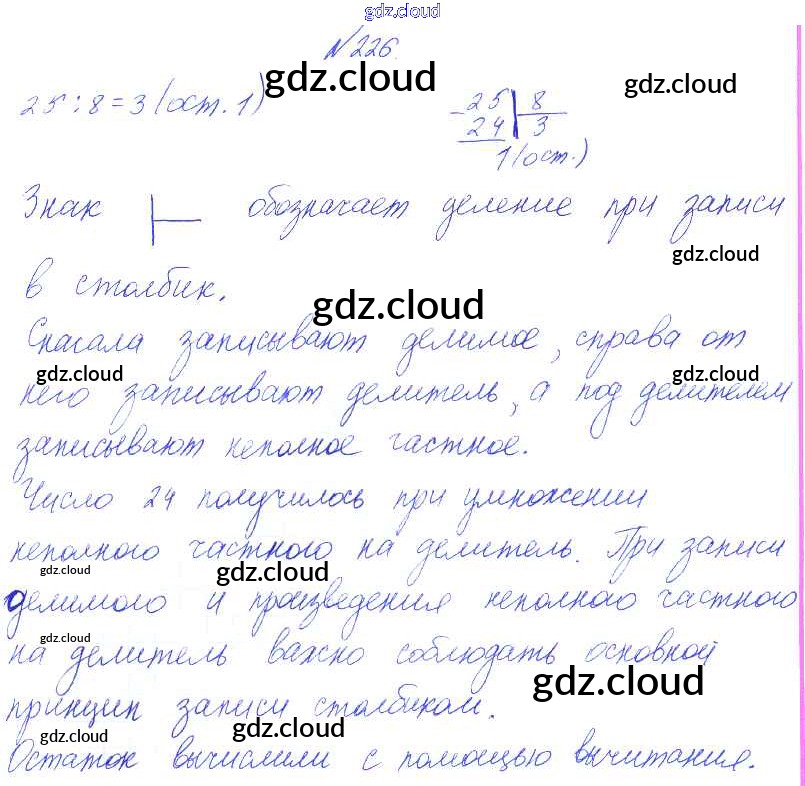 gdz.cloud
№226.
gdz.cloud
gdz.cloud
25:8=3(ост. 1)
-25 8
24 3
1(ост.)
Знак обозначает деление при записи
gdz.cloud
в столбик.
gdz.cloud
Сначала записывают делимое, справа от
gdz.cloud
gdz.cloud
него записывают делитель, а под делителем
записывают неполное частное.
Число 24 получилось при умножении
неполного частного на делитель. При записи
gdz.cloud
gdz.cloud
делимого и произведения неполного частного
gdz.cloud
на делитель важно соблюдать основной
gdz.cloud
принцип записи столбиком.
gdz.cloud
Остаток вычислили с помощью вычитания.